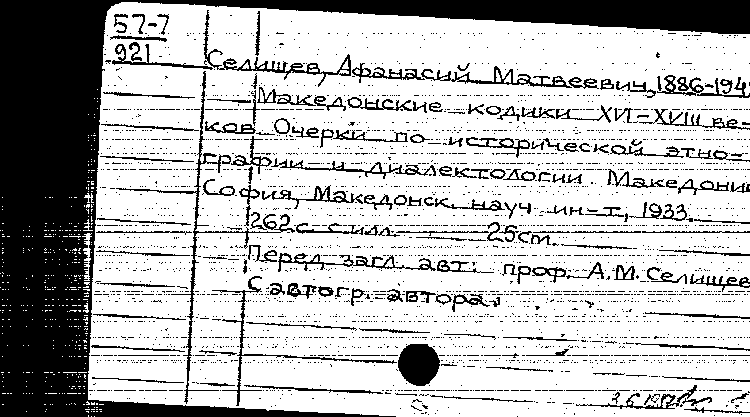 57-7
921
Селищев, Афанасий Матвеевич, 1886-194
Македонские кодики XVI-XVIII ве-
ков. Очерки по исторической этно-
графии и диалектологии Македонии
София, Македонск. науч ин-т, 1933.
262с. с илл. 25см.
Перед загл. авт: проф. А.М. Селищев
С автогр. автора.